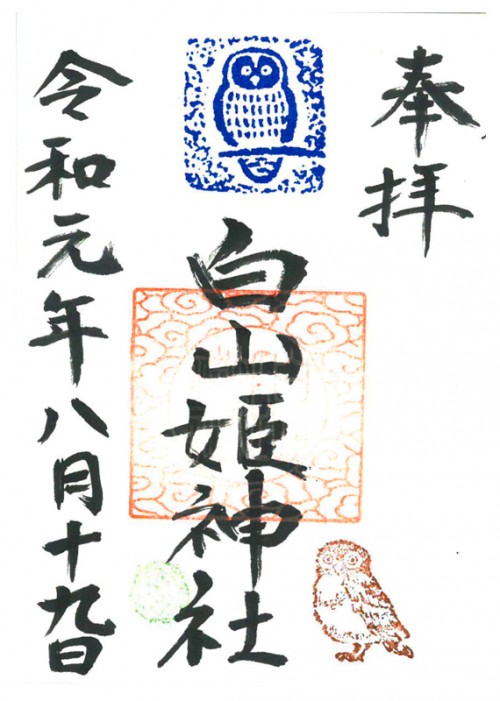 奉拝
白山姫神社
令和元年八月十九日